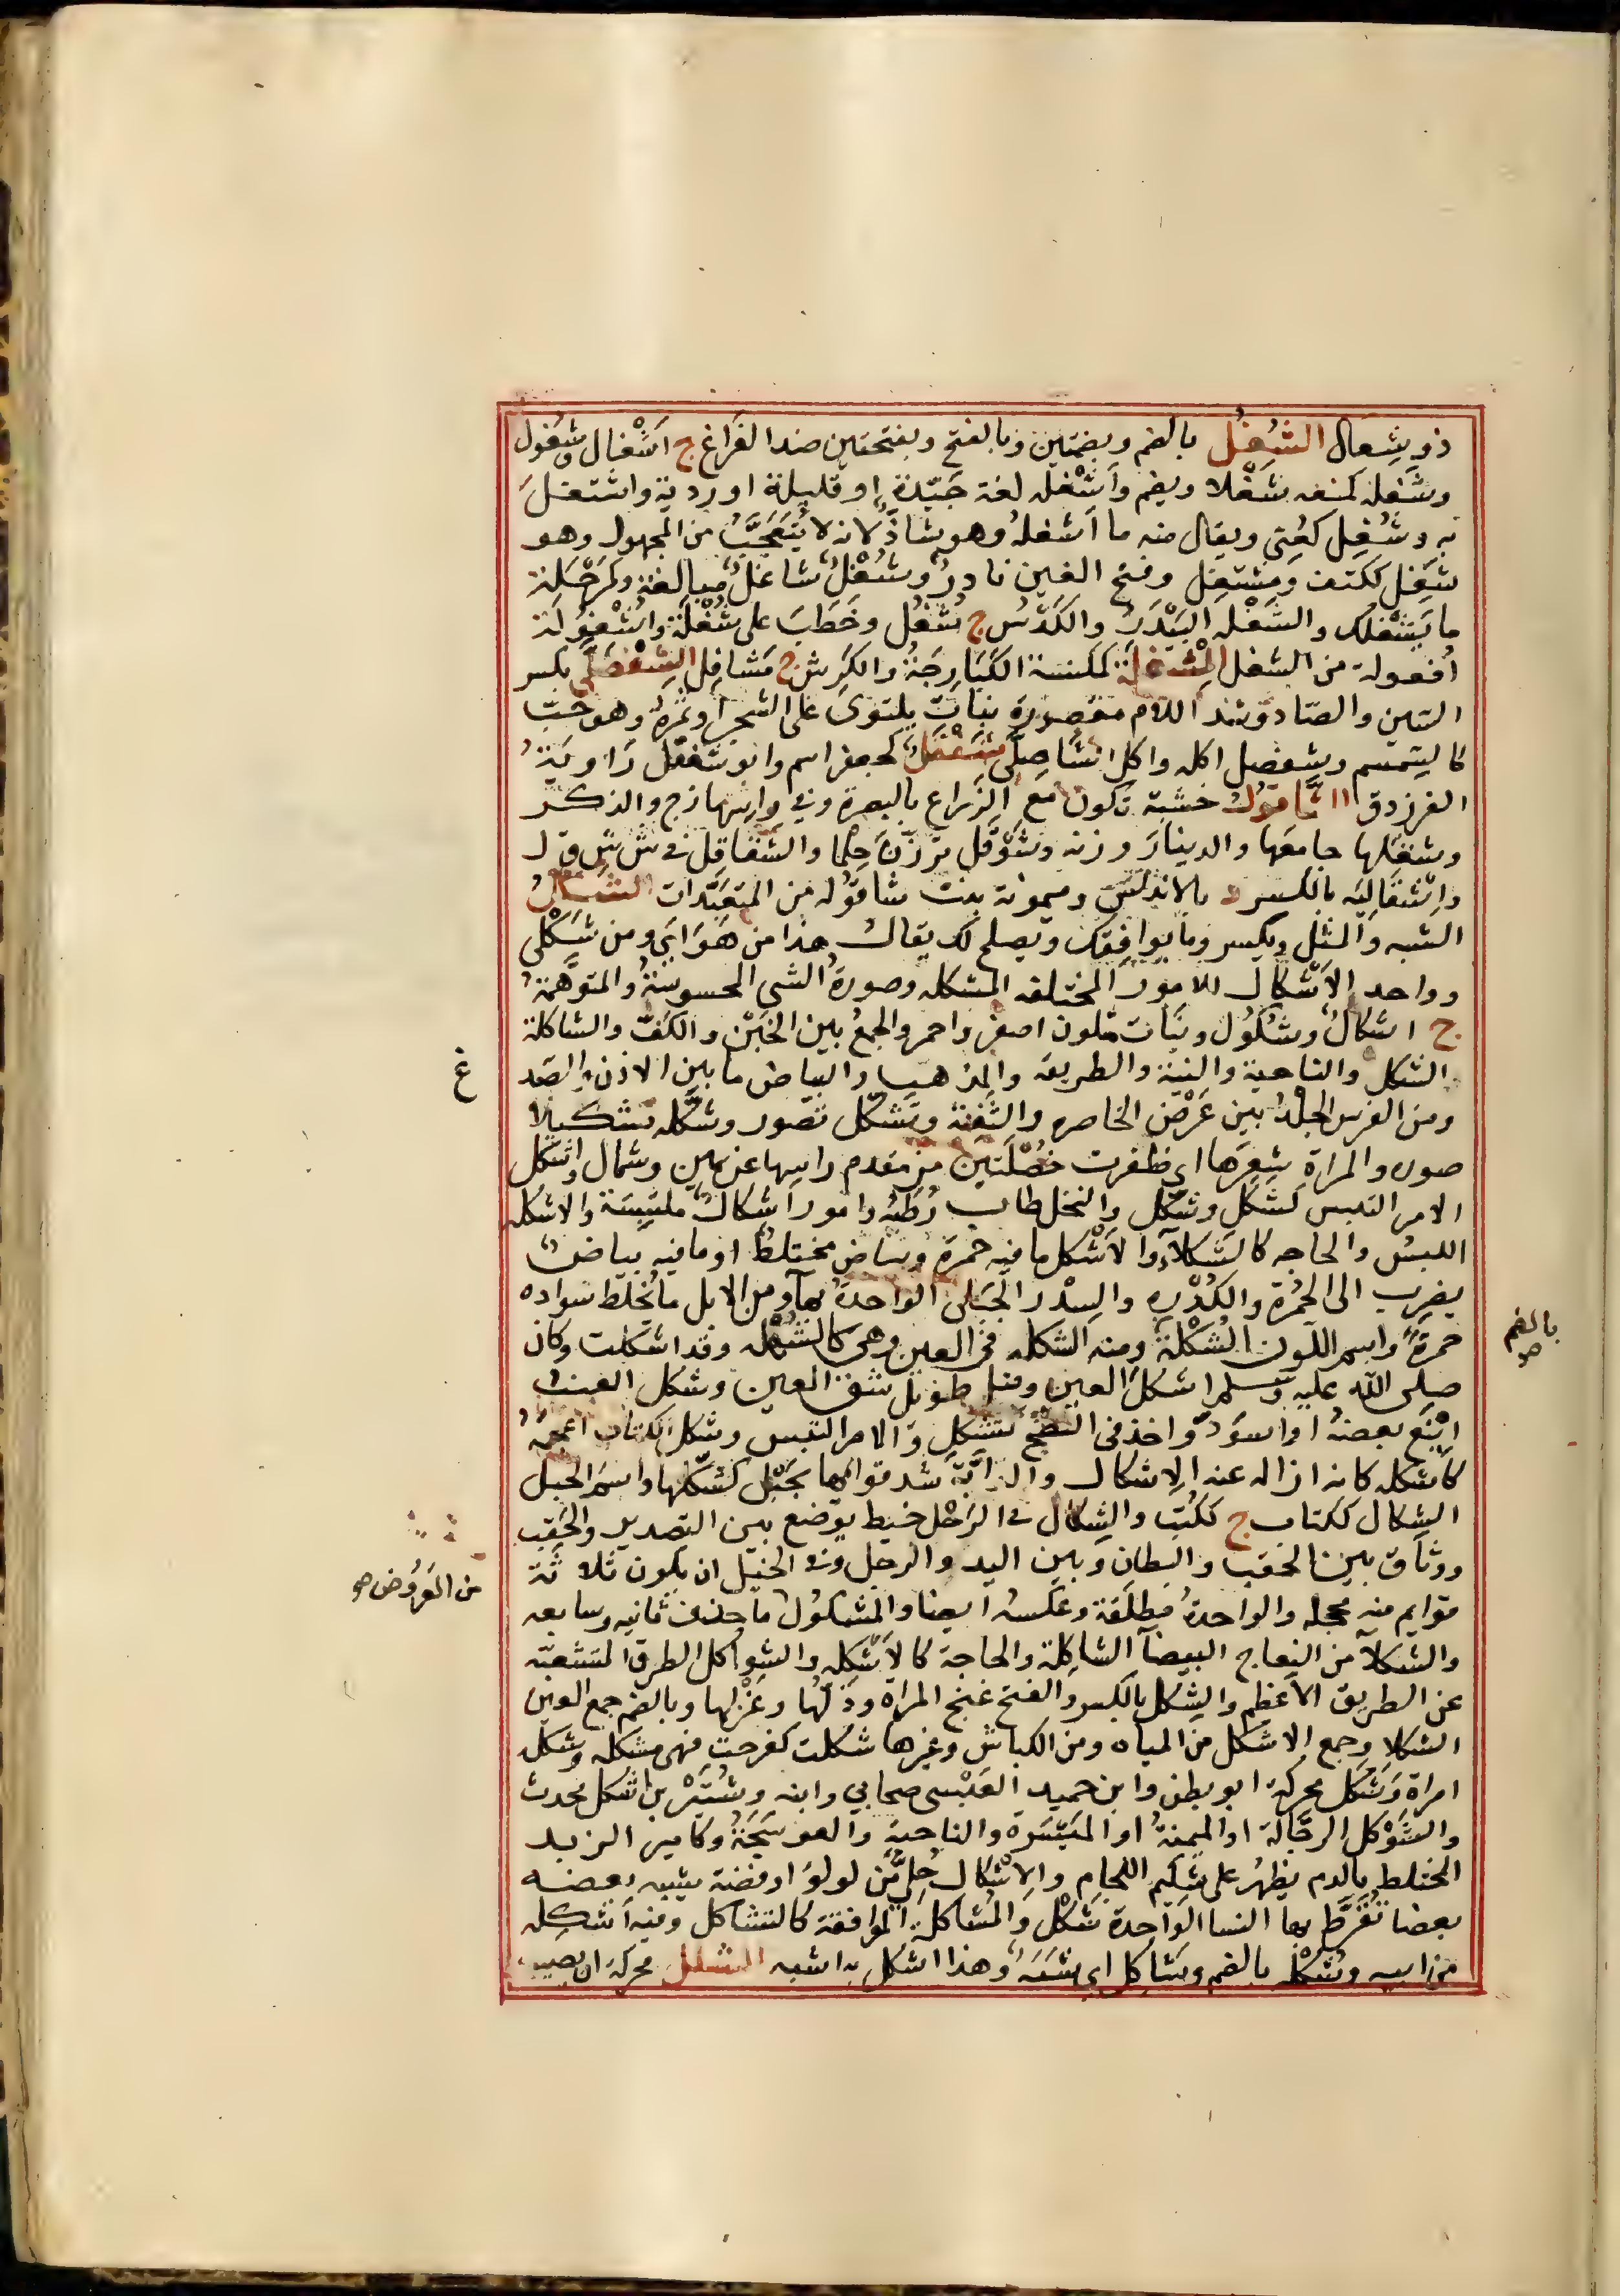 ذو شِعال الشُغْل بالضم وبضمتين وبالفتح وبفتحتين ضد الفَراغ ج اَشْغال وشُغول
وشَغَله كمنعه شَغْلا ويضم وأَشْغله لغة جَيّدة او قليلة او ردية واشتغل
به وشُغِل كعُنِي ويقال منه ما اَشغلهُ وهو شاذٌ لانه لا يُتَعَجَّبُ من المجهول وهو
شَغِل ككتف ومشتغِل وفتح الغين نادرٌ وشُغْلٌ شاغلٌ مبالغة وكمَرْحَلة
ما يَشْغلك والشَغْله البَيْدَرُ والكُدْسُ ج شَغْل وخَطَبَ على شَغْلَة واُشْغُولَة
اُفعولة من الشغل المِشْفَلَة كمكنسة الكَبَارِجَةُ والكَرِش ج مَشافِل الشِفْصِلَّى بكسر
الشين والصّاد وشد اللام مقصورة نباتٌ يلتوى على الشجر او ثمرهُ وهو حَبّ
كالسِّمسم وشِفْصل اكله واكل شَاصِلَّى شَفْقَل كجعفر اسم وابو شَفْقل رَاويَةُ
الفرزدق الشاقول خشبة تكون مع الزراع بالبصرة وفي راسها زج والذكر
وشقلها جامعَها والدينارَ وزنه وشَوْقَل تَرزّنَ حِلما والشَقاقِل في ش ش ق ل
واشْقَالِيَه بالكسر د بالاندلس وميمونة بنت شاقوله من المتعبّدات الشَكْلُ
الشبه والمثل ويكسر وما يوافِقك ويصلح لك يقال هذا من هَوَايَ ومن شَكْلي
وواحد الاَشْكال للامور المختلفه المشكله وصورةُ الشي المحسوسةُ والمتوهَّمةُ
ج اشكالٌ وشُكُول ونَبات متلون اصفر واحمر والجمعُ بين الخَبْن والكفّ والشاكلة
الشكل والناحية والنية والطريقه والمذهب والبياض ما بين الاذن والصُد
ومن الفرس الجِلْدُ بين عَرْض الخاصره والثَفِنة وتَشكّل تصور وشكّله تشكيلا
صوره والمراة شعرَها اي ظفرت خُصْلَتين من مقدم راسها عن يمين وشمال واشكل
الامر التبس كشَكَل وشكّل والنخل طاب رُطَبُه وامور اشكالٌ ملتبِسَة والاشكله
اللبسُ والحاجه كالشَكلاَء والاَشْكل ما فيه حُمرة وبياض مختلطٌ او ما فيه بياض
يضرِب الى الحُمْرة والكُدْره والسِدْر الجَبَلى الواحدة بهاء ومن الابل ما يُخلَط سواده
حمرةٌ واسم اللون الشُكْلة ومنه الشكله في العين وهي كالشُهله وقد اشكلت وكان
صلى الله عليه وسلم اشكلَ العين وقيل طويل شق العين وشكل العنب
اَيْنَع بعضهُ او اسوَدّ واخذ في النضج كتشكّل والامر التبس وشكل الكتاب اعجمهُ
كاَشكله كانه ازاله عنه الاِشكال والدابَّة شد قوائمها بحَبْل كشكّلها واسم الحبل
الشِكال ككتاب ج ككُتُب والشِكال في الرَحْل خيط يوضع بين التصدير والحَقب
ووثاق بين الحقب والبطان وبين اليد والرجل وفي الخيل ان يكون ثلاثة
قوايم منه محجله والواحدةُ مطلقة وعكسه ايضا والمشكول ما حذف ثانيه وسابعه
والشكلاَ من النعاج البيضاَ الشاكِلة والحاجة كالاَشْكله والشواكل الطرق المتشعبة
عن الطريق الاعظم والشِكل بالكسر والفتح غنج المراة ودَلّها وغَزْلها وبالضم جمع العين
الشكلا وجمع الاشكل من المياه ومن الكباش وغيرها شكلت كفرحت فهى مشكله وشكل
امراة وشَكَل محركة ابو بطن وابن حميد العَبْسى صحابي وابنه وشُتَيْر بن شكل محدث
والشَوْكل الرجّالة او الميمنةُ او المَيْسَرة والناحية والعوسَجَةُ وكامير الزبد
المختلط بالدم يظهرُ على شكيم اللجام والاِشْكال حُلِيٌّ من لولو او فضة يشبه بعضه
بعضا تُقَرَّط بها النسا الوَاحدة شَكْل والمُشاكلة الموافقة كالتشاكل وفيه اَشكِله
من ابيه وشُكْله بالضم وشاكل اي شَبَهٌ وهذا اشكل به اشبه الشلل محركة ان يصيب
غ
بالضم صح
من العَرُوض صح